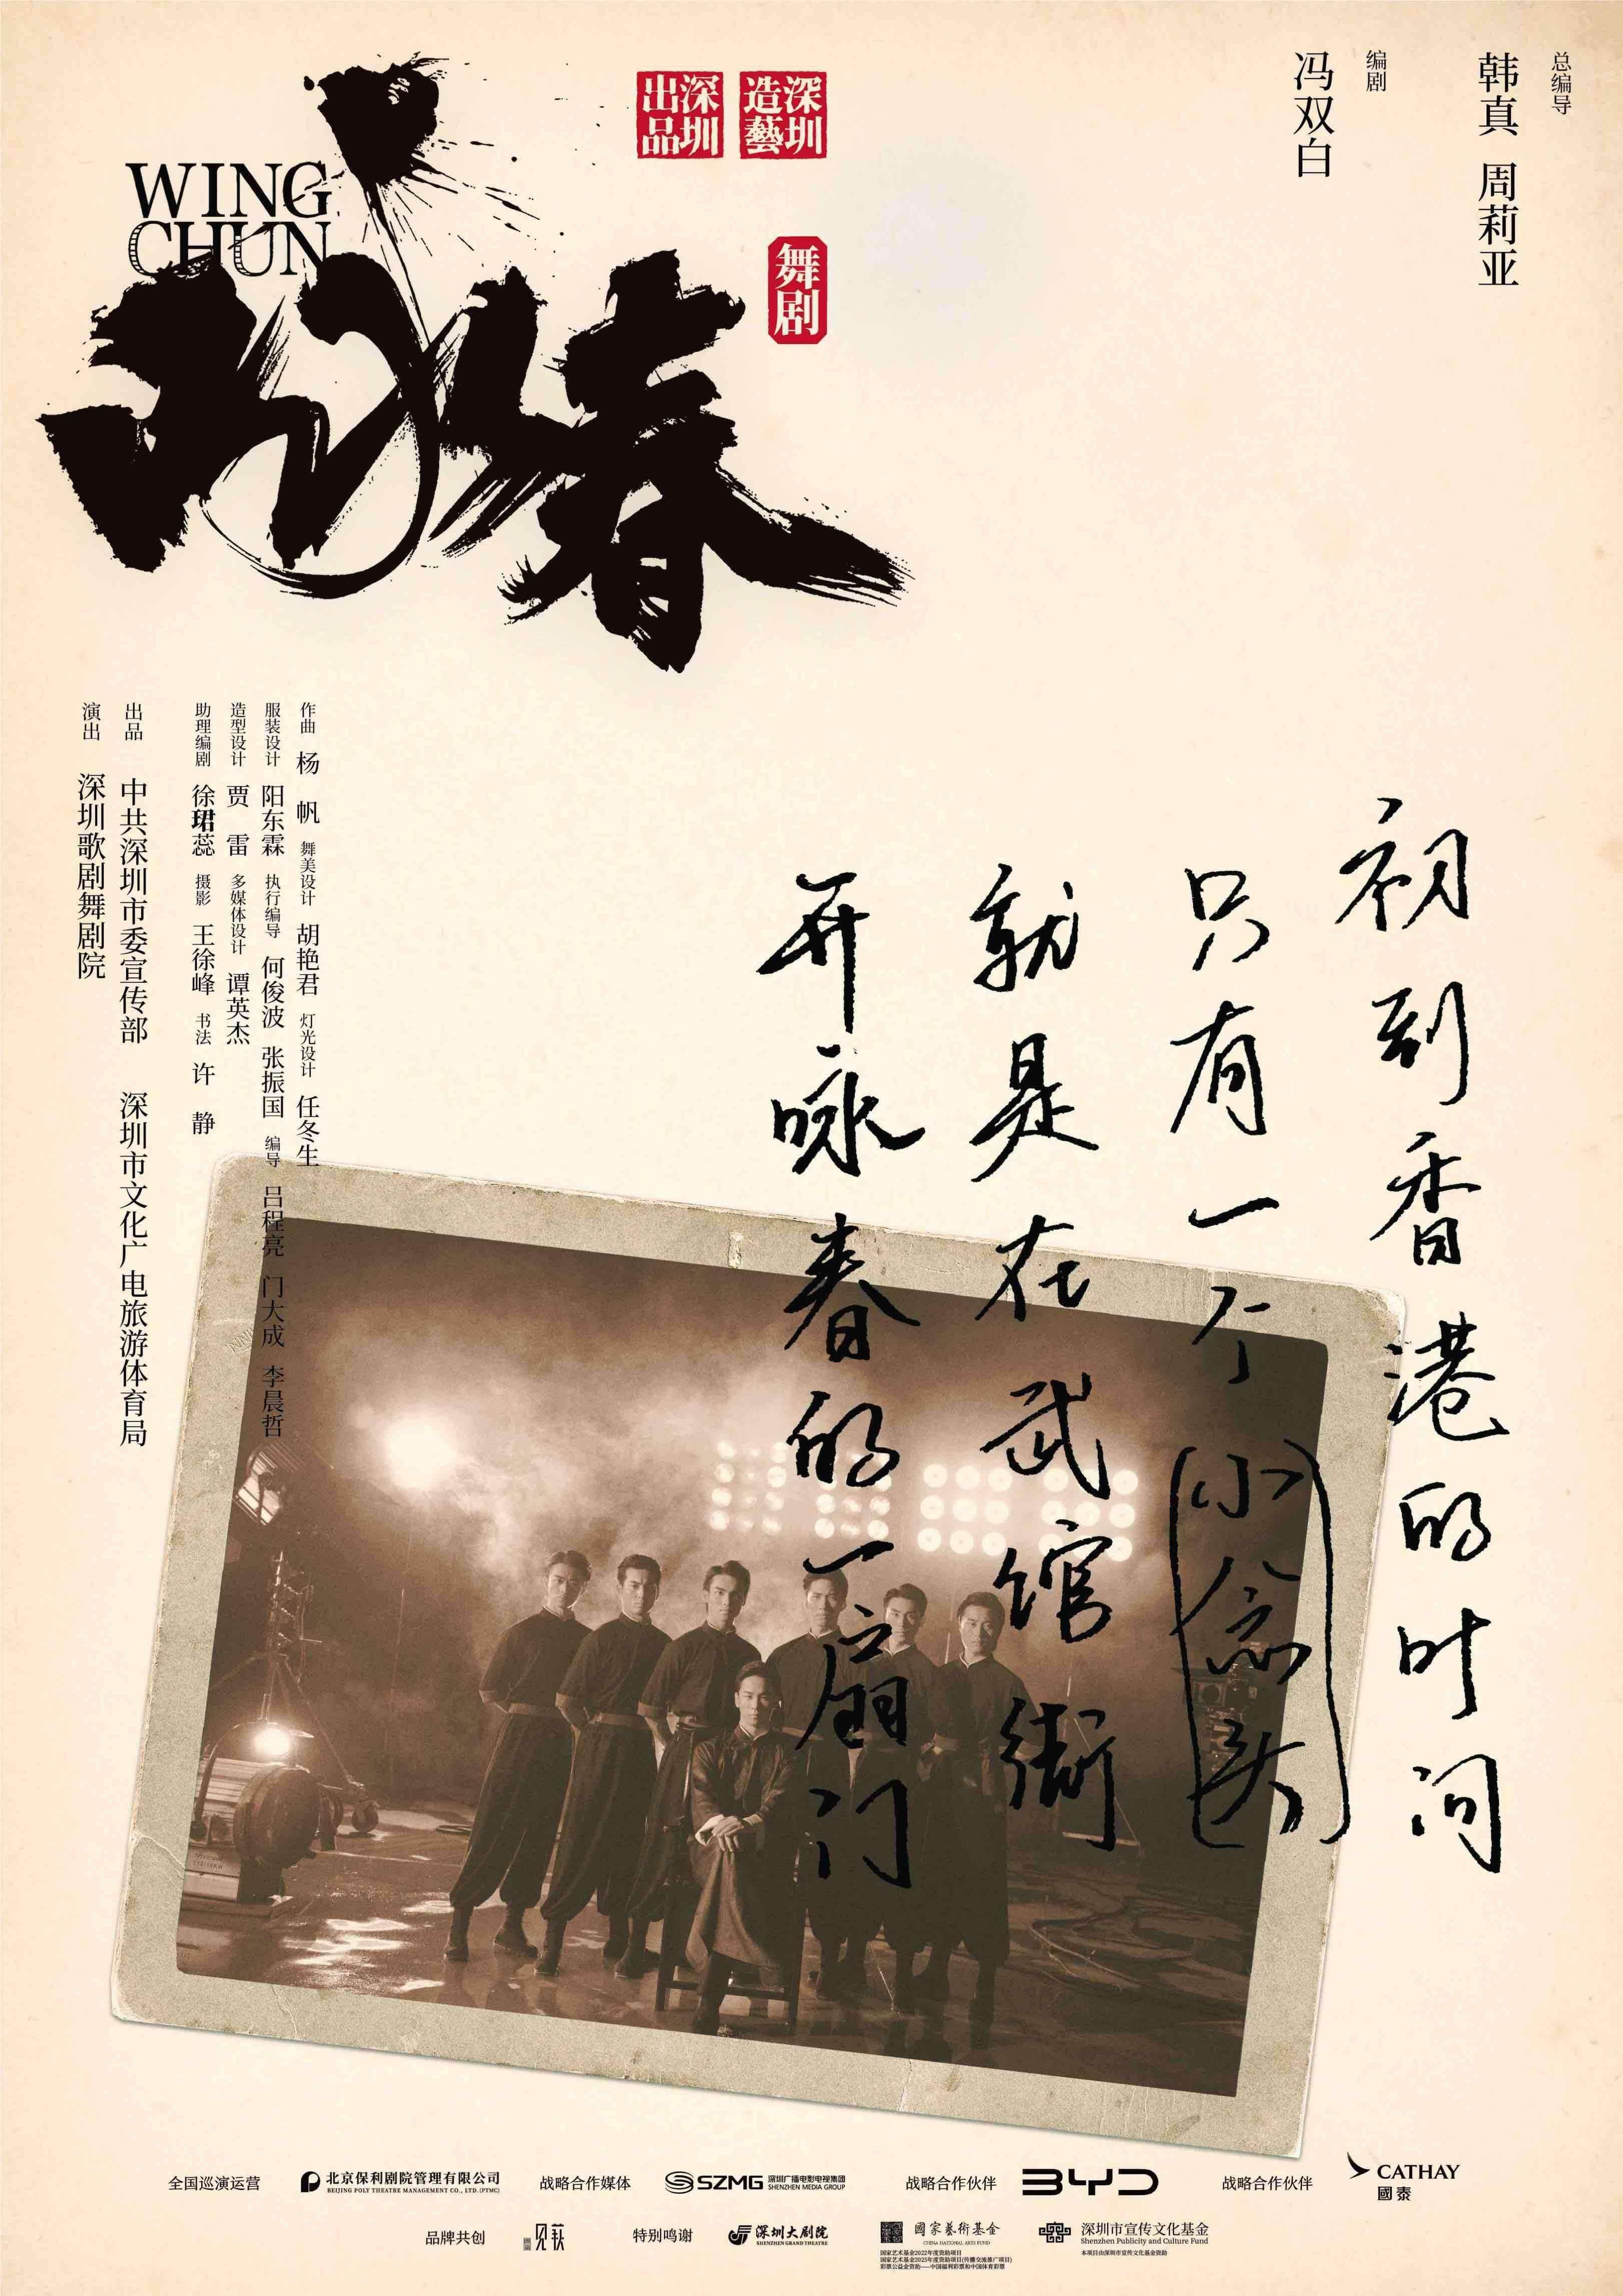 总编导
韩真 周莉亚
编剧
冯双白
深圳造藝
深圳出品
WING
CHUN
舞剧
咏春
初到香港的叶问
只有一个小念头
就是在武馆街
开咏春的一扇门
作曲 杨 帆 舞美设计 胡艳君 灯光设计 任冬生
服装设计 阳东霖 执行编导 何俊波 张振国 编导 吕程亮 门大成 李晨哲
造型设计 贾 雷 多媒体设计 谭英杰
助理编剧 徐珺蕊 摄影 王徐峰 书法 许 静
出品 中共深圳市委宣传部 深圳市文化广电旅游体育局
演出 深圳歌剧舞剧院
全国巡演运营 北京保利剧院管理有限公司
BEIJING POLY THEATRE MANAGEMENT CO., LTD. (PTMC)
战略合作媒体 SZMG 深圳广播电影电视集团
SHENZHEN MEDIA GROUP
战略合作伙伴 BYD
战略合作伙伴 CATHAY
國泰
品牌共创 见获
特别鸣谢 深圳大剧院
SHENZHEN GRAND THEATRE
國家藝術基金
CHINA NATIONAL ARTS FUND
国家艺术基金2022年度资助项目
国家艺术基金2025年度资助项目(传播交流推广项目)
彩票公益金资助——中国福利彩票和中国体育彩票
深圳市宣传文化基金
Shenzhen Publicity and Culture Fund
本项目由深圳市宣传文化基金资助